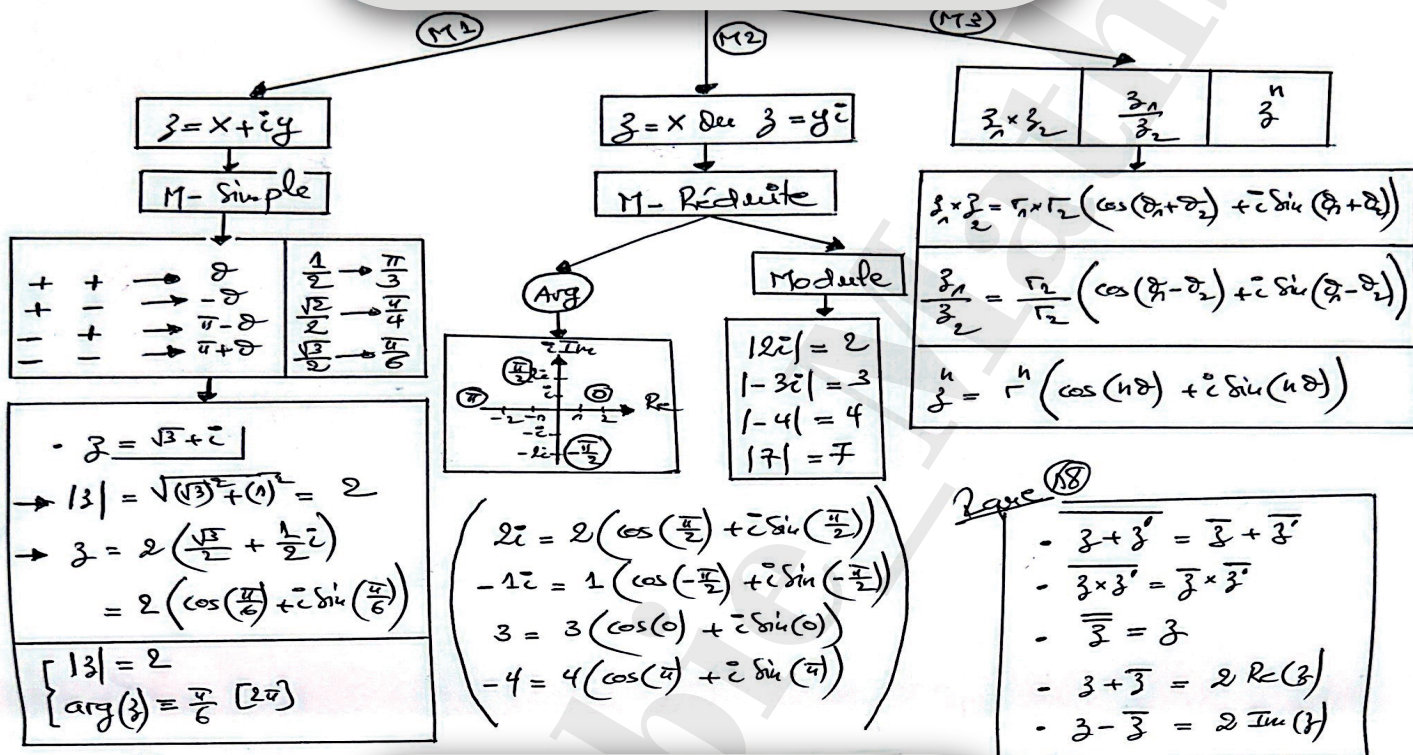 M1
M2
M3
z = x + iy
M - Simple
+ + → θ
+ - → -θ
- + → π-θ
- - → π+θ
1/2 → π/3
√2/2 → π/4
√3/2 → π/6
- z = √3 + i
→ |z| = √((√3)² + (1)²) = 2
→ z = 2(√3/2 + 1/2 i)
= 2(cos(π/6) + i Sin(π/6))
|z| = 2
arg(z) ≡ π/6 [2π]
z = x Ou z = yi
M - Réduite
Arg
Im
π/2 2i
i
π -2 -1 1 2 0 Re
-i
-2i -π/2
Module
|2i| = 2
|-3i| = 3
|-4| = 4
|7| = 7
2i = 2(cos(π/2) + i Sin(π/2))
-1i = 1(cos(-π/2) + i Sin(-π/2))
3 = 3(cos(0) + i Sin(0))
-4 = 4(cos(π) + i Sin(π))
z₁ × z₂
z₁/z₂
zⁿ
z₁ × z₂ = r₁ × r₂ (cos(θ₁+θ₂) + i Sin(θ₁+θ₂))
z₁/z₂ = r₂/r₂ (cos(θ₁-θ₂) + i Sin(θ₁-θ₂))
zⁿ = rⁿ (cos(nθ) + i Sin(nθ))
Rare 18
- z̅+̅z̅'̅ = z̅ + z̅'̅
- z̅×̅z̅'̅ = z̅ × z̅'̅
- z̿ = z
- z + z̅ = 2 Re(z)
- z - z̅ = 2 Im(z)